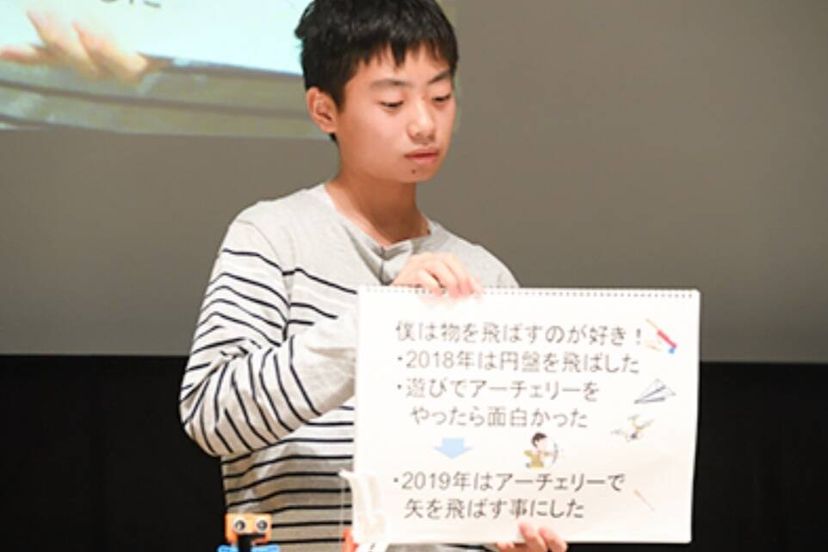 した
僕は物を飛ばすのが好き!
・2018年は円盤を飛ばした
・遊びでアーチェリーを
やったら面白かった
・2019年はアーチェリーで
矢を飛ばす事にした